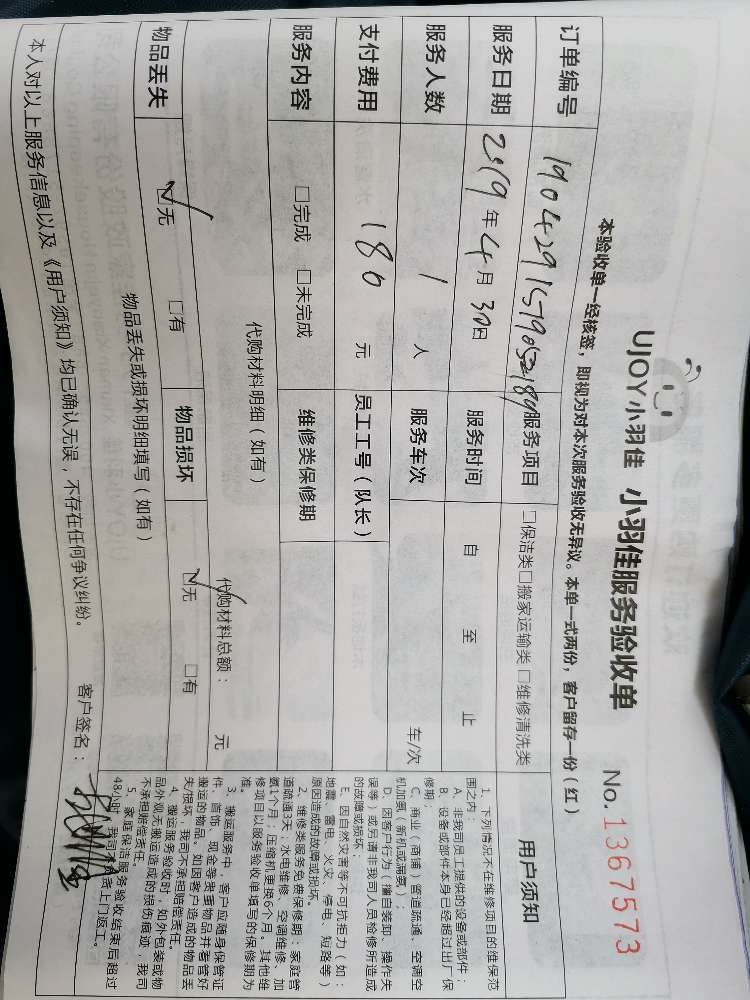 UJOY小羽佳 小羽佳服务验收单 No.1367573
本验收单一经核签，即视为对本次服务验收无异议。本单一式两份，客户留存一份（红）
订单编号 服务项目 □保洁类□搬家运输类□维修清洗类
服务日期 2019年4月30日 服务时间 自 至 止
服务人数 1 人 服务车次 车/次
支付费用 180 元 员工工号（队长）
服务内容 □完成 □未完成 维修类保修期
代购材料明细（如有）
代购材料总额： 元
物品丢失 ☑无 □有 物品损坏 ☑无 □有
物品丢失或损坏明细填写（如有）
用户须知
1、下列情况不在维修项目的维保范
围之内：
A、非我司员工提供的设备或部件；
B、设备或部件本身已经超过出厂保
修期；
C、商业（商铺）管道疏通、空调空
机加氨（新机或漏氨）；
D、因客户行为（擅自装卸、操作失
误等）或另请非我司人员检修所造成
的故障或损坏；
E、因自然灾害等不可抗拒力（如：
地震、雷电、火灾、停电、短路等）
原因造成的故障或损坏。
2、维修类服务免费保修期：家庭管
道疏通3天；水电维修、空调维修、加
氨1个月；压缩机更换6个月。其他维
修项目以服务验收单填写的保修期为
准。
3、搬运服务中，客户应随身保管证
件、首饰、现金等贵重物品并看管好
搬运的物品。如因客户造成的物品丢
失/损坏，我司不承担赔偿责任。
4、搬运服务验收时，如外包装或物
品外观无搬运造成的损伤痕迹，我司
不承担赔偿责任。
5、家庭保洁服务验收结束后超过
48小时，我司不负责上门返工。
本人对以上服务信息以及《用户须知》均已确认无误，不存在任何争议纠纷。 客户签名：